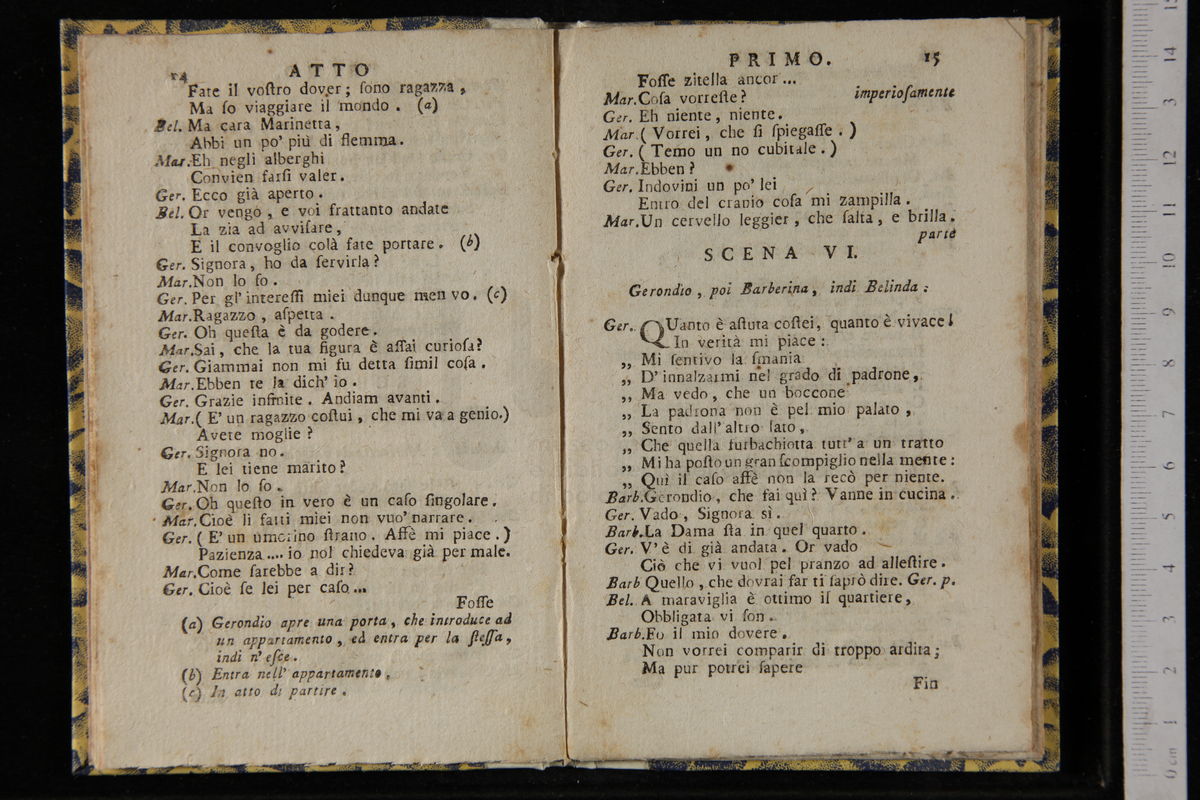 14 ATTO
Fate il voſtro dover; ſono ragazza,
Ma ſo viaggiare il mondo. (a)
Bel. Ma cara Marinetta,
Abbi un po' più di flemma.
Mar. Eh negli alberghi
Convien farſi valer.
Ger. Ecco già aperto.
Bel. Or vengo, e voi frattanto andate
La zia ad avviſare,
E il convoglio colà fate portare. (b)
Ger. Signora, ho da ſervirla?
Mar. Non lo ſo.
Ger. Per gl' intereſſi miei dunque men vo. (c)
Mar. Ragazzo, aſpetta.
Ger. Oh queſta è da godere.
Mar. Sai, che la tua figura è aſſai curioſa?
Ger. Giammai non mi fu detta ſimil coſa.
Mar. Ebben te la dich' io.
Ger. Grazie infinite. Andiam avanti.
Mar. ( E' un ragazzo coſtui, che mi va a genio.)
Avete moglie?
Ger. Signora no.
E lei tiene marito?
Mar. Non lo ſo.
Ger. Oh queſto in vero è un caſo ſingolare.
Mar. Cioè li fatti miei non vuo' narrare.
Ger. ( E' un umorino ſtrano. Affè mi piace.)
Pazienza.... io nol chiedeva già per male.
Mar. Come ſarebbe a dir?
Ger. Cioè ſe lei per caſo...
Foſſe
(a) Gerondio apre una porta, che introduce ad
un appartamento, ed entra per la ſteſſa,
indi n' eſce.
(b) Entra nell' appartamento.
(c) In atto di partire.
PRIMO. 15
Foſſe zitella ancor...
Mar. Coſa vorreſte? imperioſamente
Ger. Eh niente, niente.
Mar. ( Vorrei, che ſi ſpiegaſſe. )
Ger. ( Temo un no cubitale. )
Mar. Ebben?
Ger. Indovini un po' lei
Entro del cranio coſa mi zampilla.
Mar. Un cervello leggier, che ſalta, e brilla.
parte
SCENA VI.
Gerondio, poi Barberina, indi Belinda:
Ger. QUanto è aſtuta coſtei, quanto è vivace!
In verità mi piace:
„ Mi ſentivo la ſmania
„ D' innalzarmi nel grado di padrone,
„ Ma vedo, che un boccone
„ La padrona non è pel mio palato,
„ Sento dall' altro lato,
„ Che quella furbachiotta tutt' a un tratto
„ Mi ha poſto un gran ſcompiglio nella mente:
„ Quì il caſo affè non la recò per niente.
Barb. Gerondio, che fai quì? Vanne in cucina.
Ger. Vado, Signora sì.
Barb. La Dama ſta in quel quarto.
Ger. V' è di già andata. Or vado
Ciò che vi vuol pel pranzo ad alleſtire.
Barb Quello, che dovrai far ti ſaprò dire. Ger. p.
Bel. A maraviglia è ottimo il quartiere,
Obbligata vi ſon.
Barb. Fo il mio dovere.
Non vorrei comparir di troppo ardita;
Ma pur potrei ſapere
Fin